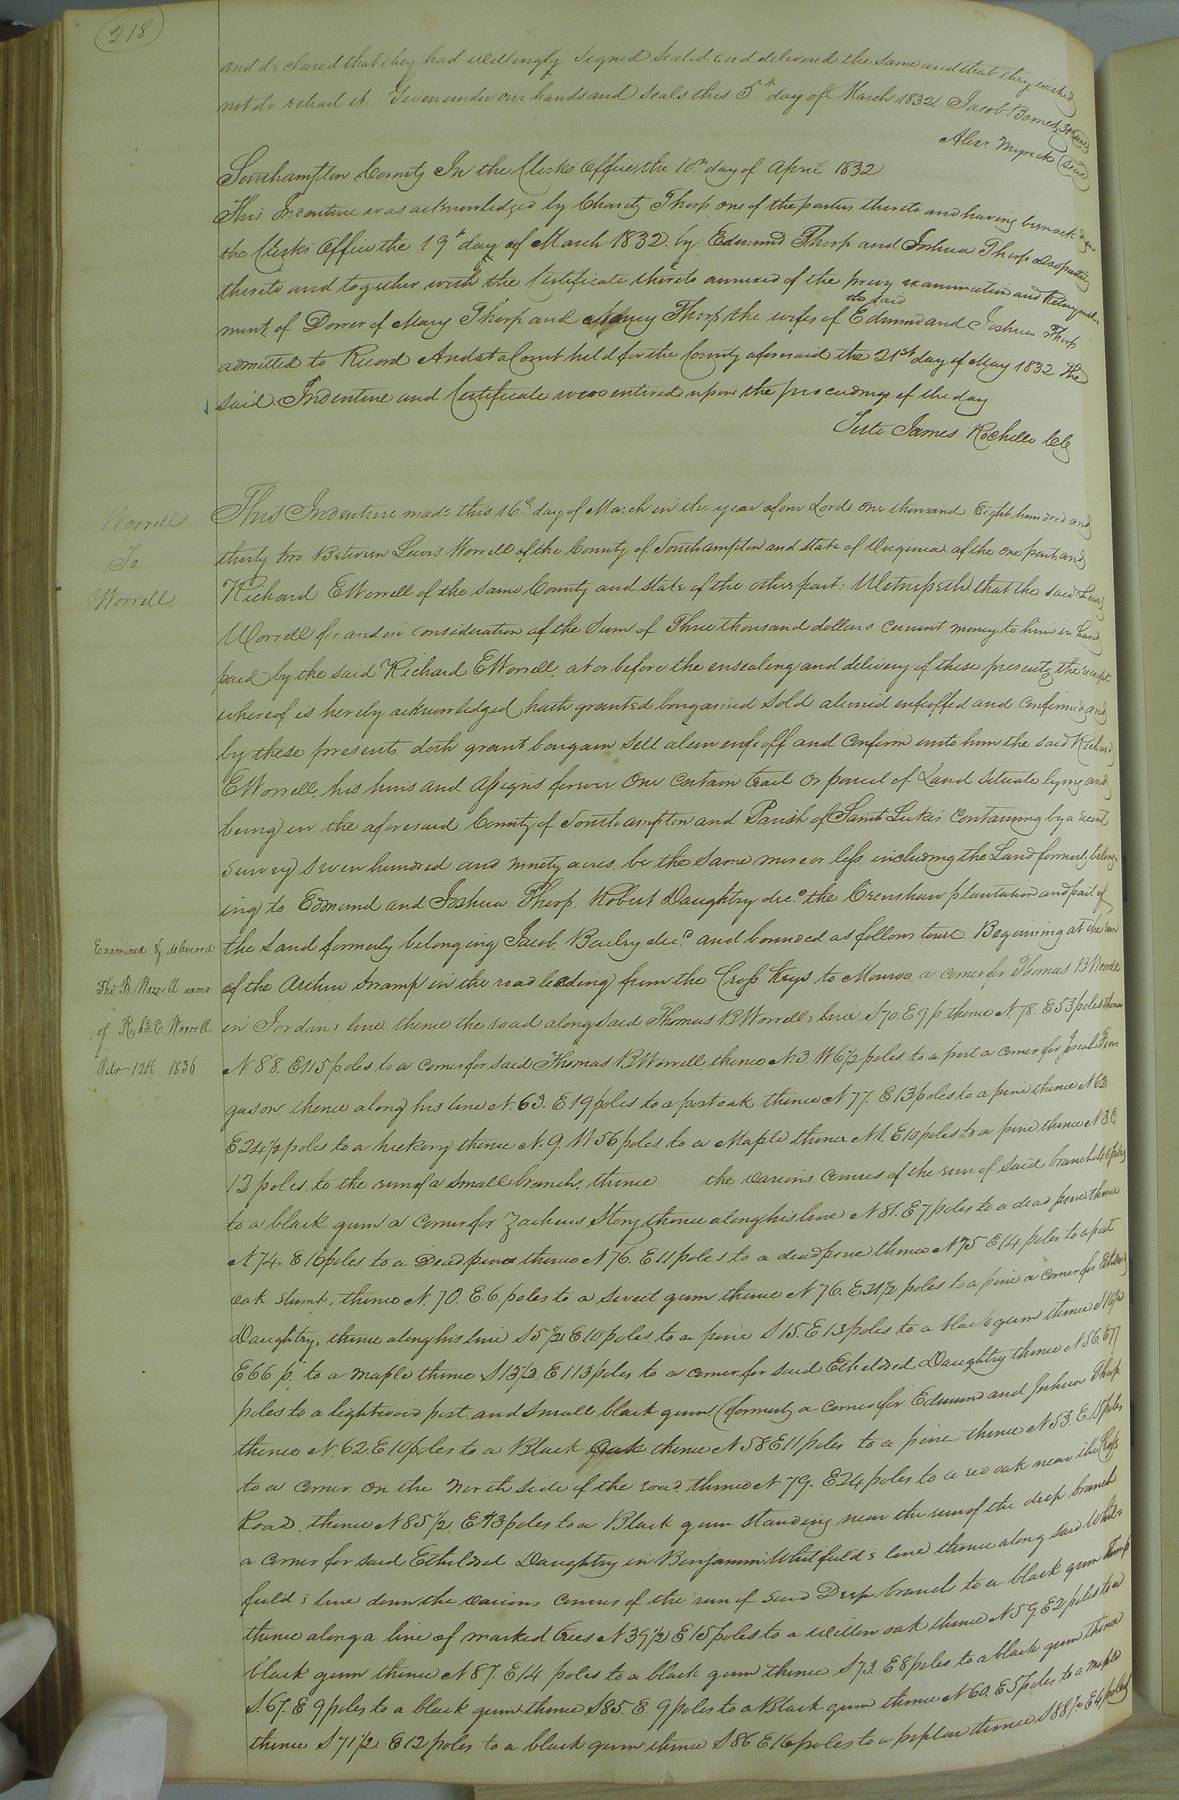 218
and declared that they had willingly signed sealed and delivered the same and that they wished
not to retract it Given under our hands and seals this 5th day of March 1832 Jacob Barnes Seal
Alexr. Myrick Seal
Southampton County In the Clerks Office the 10th day of April 1832
This Indenture was acknowledged by Charity Thorp one of the parties thereto and having been ack
the Clerks Office the 19th day of March 1832 by Edmund Thorp and Joshua Thorp also parties
thereto and together with the Certificate thereto annexed of the privy examination and Relinquish
ment of Dower of Mary Thorp and Nancy Thorp the wifes of the said Edmund and Joshua Thorp
admitted to Record And at a Court held for the County aforesaid the 21st day of May 1832 The
said Indenture and Certificate were entered upon the proceedings of the day
Teste James Rochelle Clk
Worrell
To
Worrell
This Indenture made this 16th day of March in the year of our Lord one thousand Eight hundred and
thirty two Between Lewis Worrell of the County of Southampton and state of Virginia of the one part and
Richard E Worrell of the same County and state of the other part: Witnesseth that the said Lewis
Worrell for and in consideration of the Sum of Three thousand dollars current money to him in han
paid by the said Richard E Worrell, at or before the ensealing and delivery of these presents, the receipt
whereof is hereby acknowledged, hath granted bargained sold aliened enfeoffed and confirmed and
by these presents doth grant bargain sell alien enfeoff and confirm unto him the said Richard
E Worrell, his heirs and assigns forever One certain tract or parcel of Land situate lying and
being in the aforesaid County of Southampton and Parish of Saint Luke's Containing by a recent
survey seven hundred and ninety acres be the same more or less including the Land formerly belong
ing to Edmund and Joshua Thorp, Robert Daughtry decd. the Crenshaw plantation and part of
the Land formerly belonging Jacob Bailey decd. and bounded as follows towit Beginning at the run
of the swamp in the road leading from the Cross Keys to Monroe a corner for Thomas B Worrell
in Jordan's line thence the road along said Thomas B Worrell's line S 70. E 9 p. thence N 78. E 53 poles thence
N 88. E 115 poles to a corner for said Thomas B Worrell thence N 3. W 6½ poles to a post a corner for Josiah
guson, thence along his line N. 63. E 19 poles to a post oak thence N 77. E 13 poles to a pine thence N 62
E 24½ poles to a hickory thence N. 9. W 56 poles to a Maple thence N 1. E 10 poles to a pine thence N 3 E
12 poles to the run of a small branch, thence the various courses of the run of said branch poles
to a black gum a corner for Zacheus Story thence along his line N 81. E 7 poles to a dead pine thence
N 74. E 10 poles to a Dead pine thence N 76. E 11 poles to a dead pine thence N 75 E 14 poles to a post
oak stump, thence N. 70. E. 6 poles to a sweet gum thence N 76. E 21½ poles to a pine a corner for Etheldred
Daughtry, thence along his line S 5½ E 10 poles to a pine S 15. E 13 poles to a black gum thence S
E 66 p. to a maple thence S 13½. E 113 poles to a corner for said Etheldred Daughtry thence N 56. E 77
poles to a lightwood post and small black gum (formerly a corner for Edmund and Joshua Thorp
thence N. 62. E 10 poles to a Black Oak thence N 58 E 11 poles to a pine thence N 53. E 18 poles
to a corner on the North side of the road thence N 79. E 24 poles to a red oak near the Cross
Road thence N 85½. E 43 poles to a Black gum standing near the run of the deep branch
a corner for said Etheldred Daughtry in Benjamin Whitfield's line thence along said Whit
field's line down the various courses of the run of said Deep branch to a black gum stump
thence along a line of marked trees N 39½ E 15 poles to a willow oak thence N 59. E 2 poles to a
black gum thence N 87. E 14 poles to a black gum thence S 73. E 8 poles to a black gum thence
S. 67. E 9 poles to a black gum thence S 85. E. 9 poles to a Black gum thence N 60. E 5 poles to a maple
thence S 71½ E 12 poles to a black gum thence S 86 E 16 poles to a poplar thence S 88½ E 4 poles
Examined & delivered
Tho. B. Worrell
of R. E. Worrell
Octr. 12th 1836